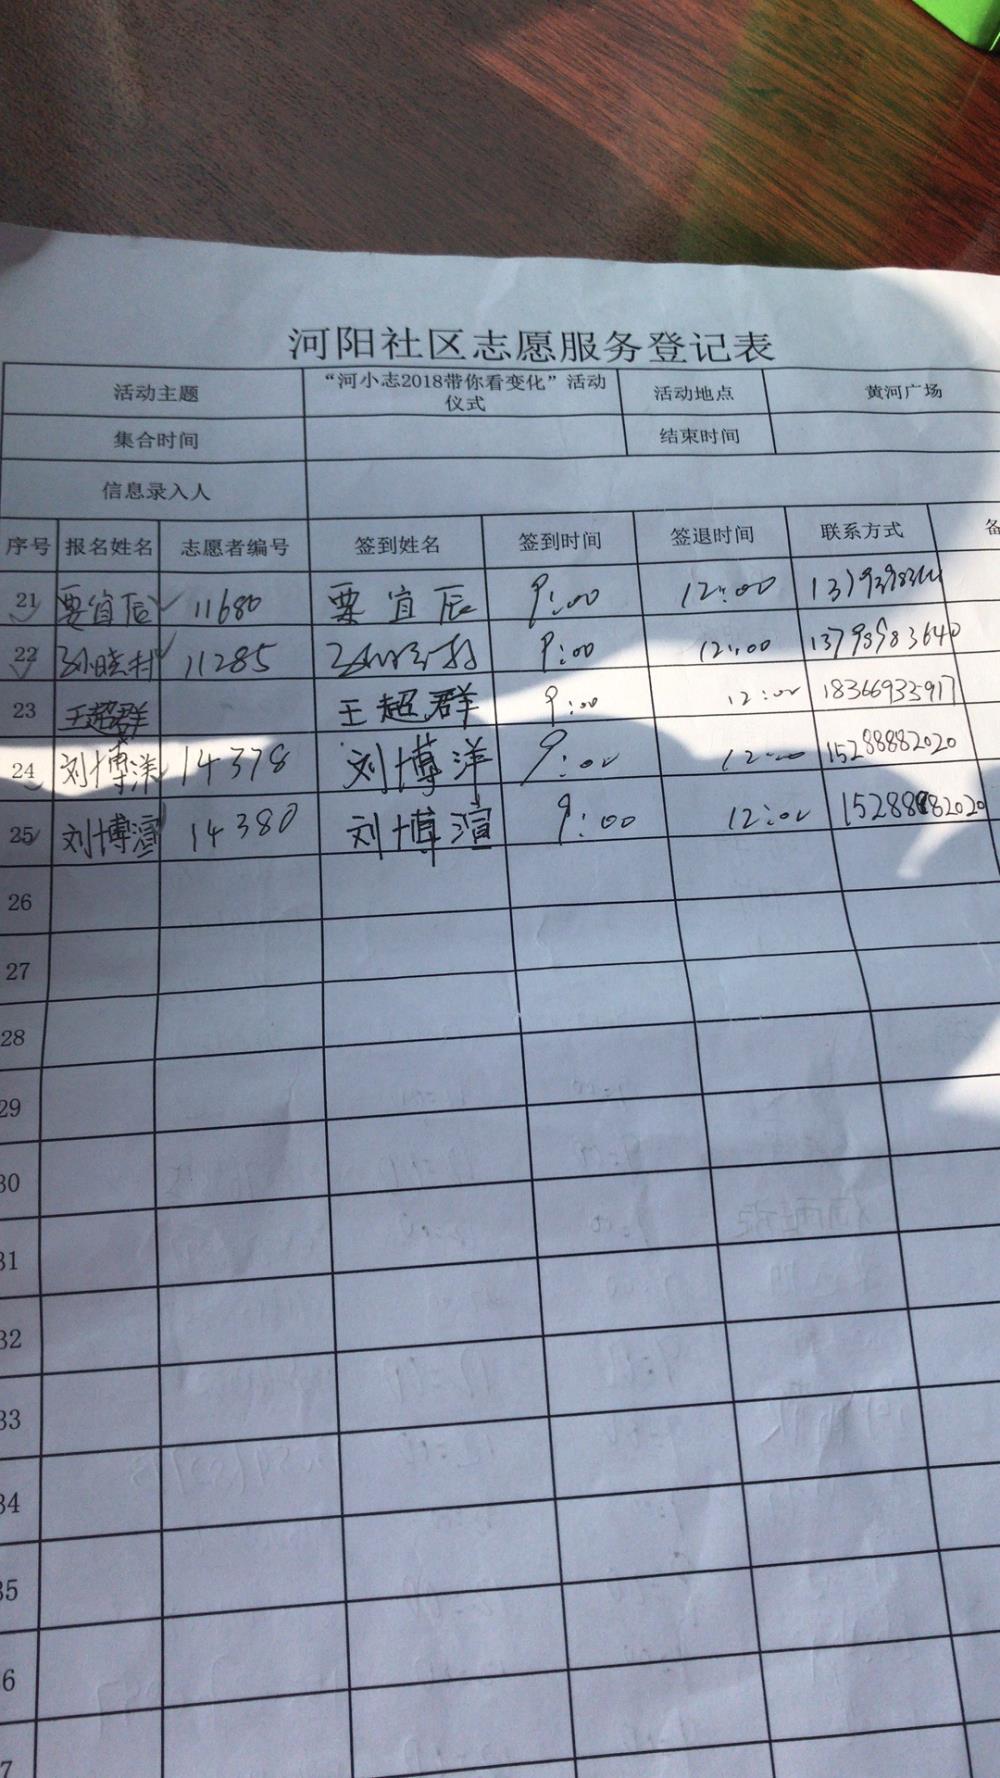 河阳社区志愿服务登记表
活动主题 “河小志2018带你看变化”活动仪式 活动地点 黄河广场
集合时间 结束时间
信息录入人
序号 报名姓名 志愿者编号 签到姓名 签到时间 签退时间 联系方式 备
21 栗宜辰 11680 栗宜辰 9:00 12:00
22 孙晓村 11285 9:00 12:00 13793983640
23 王超群 王超群 9:00 12:00 18366933917
24 刘博洋 14378 刘博洋 9:00 12:00 15288882020
25 刘博渲 14380 刘博渲 9:00 12:00 15288882020
26
27
28
29
30
31
32
33
34
35
6
7